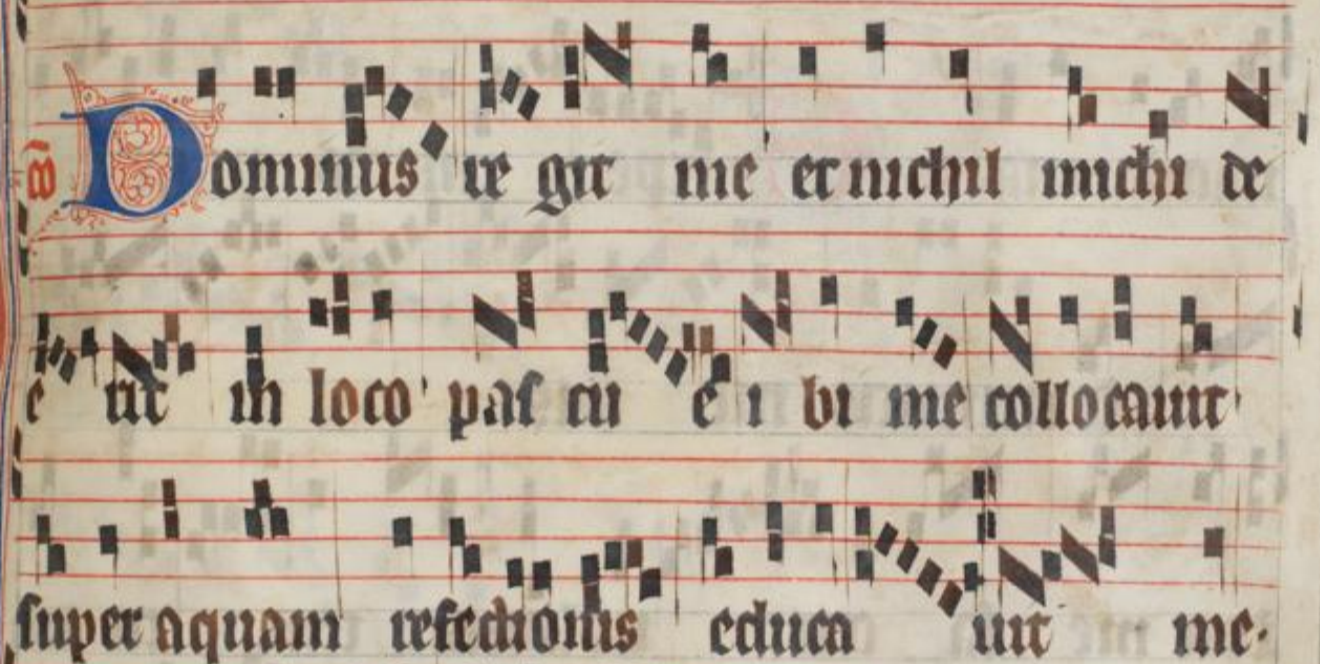 Dominus re git me et nichil michi de
e rit in loco pas cu e i bi me collocauit
super aquam refectionis educa uit me.